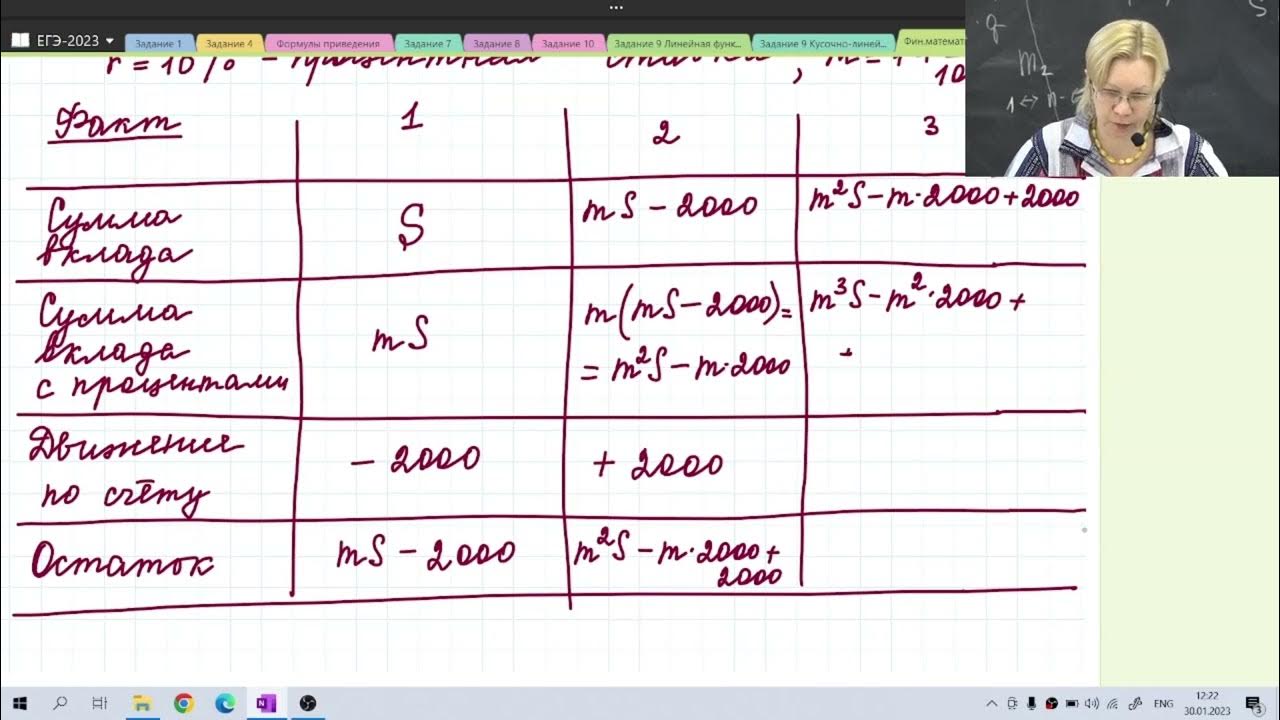 ...
ЕГЭ-2023
Задание 1
Задание 4
Формулы приведения
Задание 7
Задание 8
Задание 10
Задание 9 Линейная функ...
Задание 9 Кусочно-линей...
Фин.математ
r = 10% - процентная ставка, m = 1 +
10
Факт 1 2 3
Сумма вклада S mS - 2000 m²S - m·2000 + 2000
Сумма вклада с процентами mS m(mS - 2000) = = m²S - m·2000 m³S - m²·2000 + +
Движения по счёту - 2000 + 2000
Остаток mS - 2000 m²S - m·2000 + 2000
q
m₂
1 ↔ n -
S
ENG
12:22
30.01.2023
3